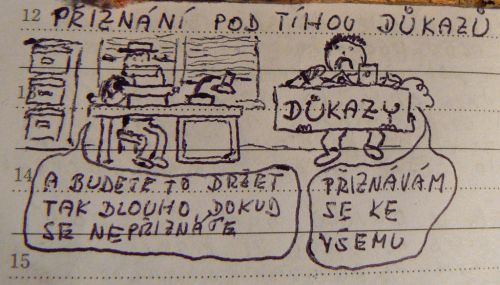 12 PŘIZNÁNÍ POD TÍHOU DŮKAZŮ
13
DŮKAZY
14
A BUDETE TO DRŽET
TAK DLOUHO, DOKUD
SE NEPŘIZNÁTE
PŘIZNAVÁM
SE KE
VŠEMU
15